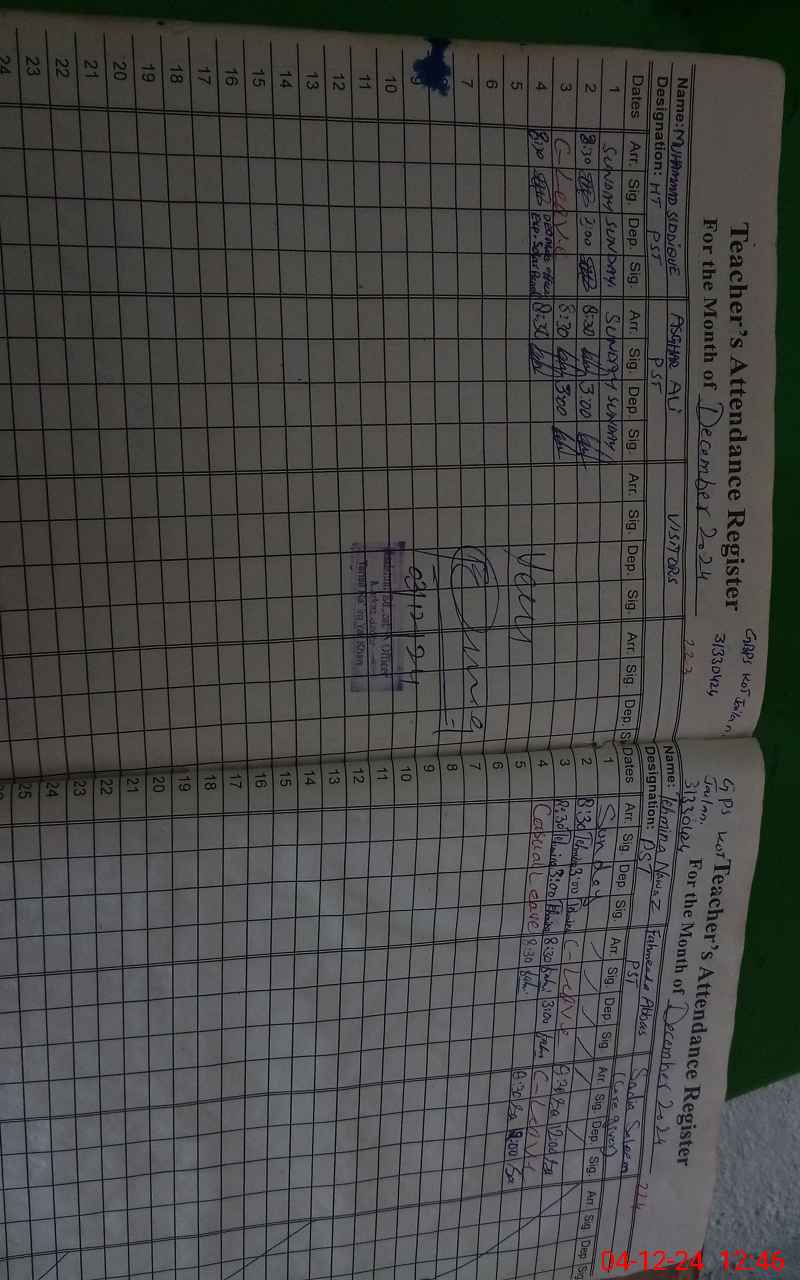 Teacher's Attendance Register
For the Month of December 2024
GBPS KOT Jailan
31330424
223
Name: MUHAMMAD SIDDIQUE ASGHAR ALI VISITORS
Designation: HT PST PST
Dates Arr. Sig. Dep. Sig. Arr. Sig. Dep. Sig. Arr. Sig. Dep. Sig. Arr. Sig. Dep. S
1 SUNDAY SUNDAY SUNDAY SUNDAY
2 8:30 3:00 8:30 3:00
3 C-Leave 8:30 3:00
4 8:30 8:30
5
6
7
9
10
11
12
13
14
15
16
17
18
19
20
21
22
23
24
03/12/24
Officer
GPS KOT
Jailan
31330424
Teacher's Attendance Register
For the Month of December 2024
224
Name: Tehmina Nawaz Fahmeeda Abbas Sadia Saleem
Designation: PST PST (Care giver)
Dates Arr. Sig. Dep. Sig. Arr. Sig. Dep. Sig. Arr. Sig. Dep. Sig. Arr Sig. Dep. Sig
1 Sunday
2 8:30 3:00 C-Leave
3 8:30 3:00 8:30 3:00
4 Casual Leave 8:30 C-Leave
5 8:30
6
7
8
9
10
11
12
13
14
15
16
17
18
19
20
21
22
23
24
25
04-12-24 12:46